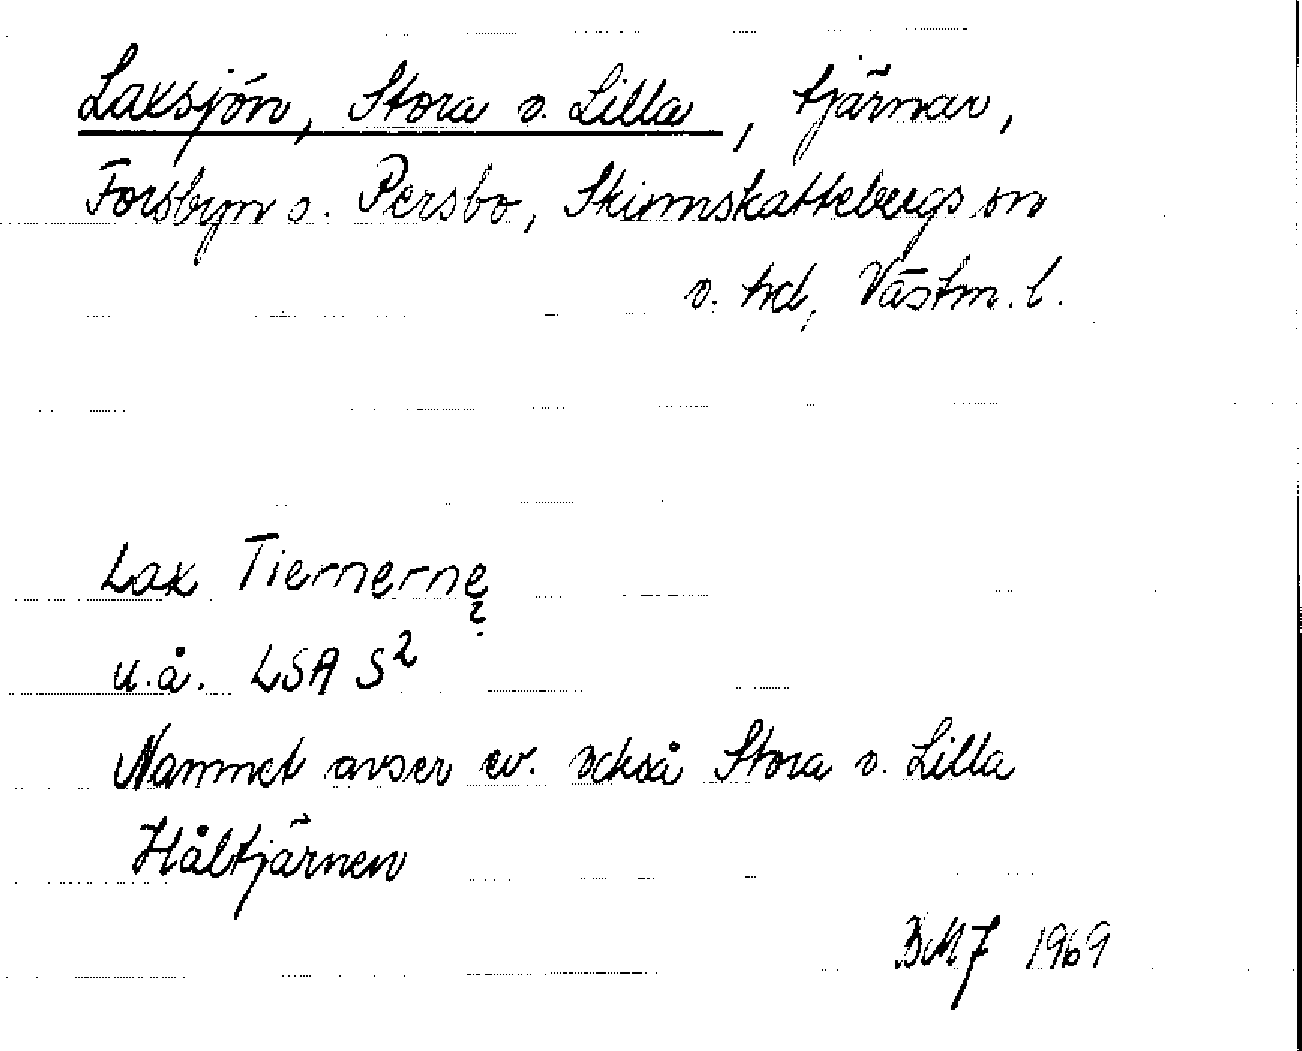 Laxsjön, Stora o. Lilla, tjärnar,
Forsbyn o. Persbo, Skinnskattebergs sn
o. hd, Västm. l.
Lax Tiernerne
?
u.å. LSA S²
Namnet avser ev. också Stora o. Lilla
Håltjärnen
BMJ 1969